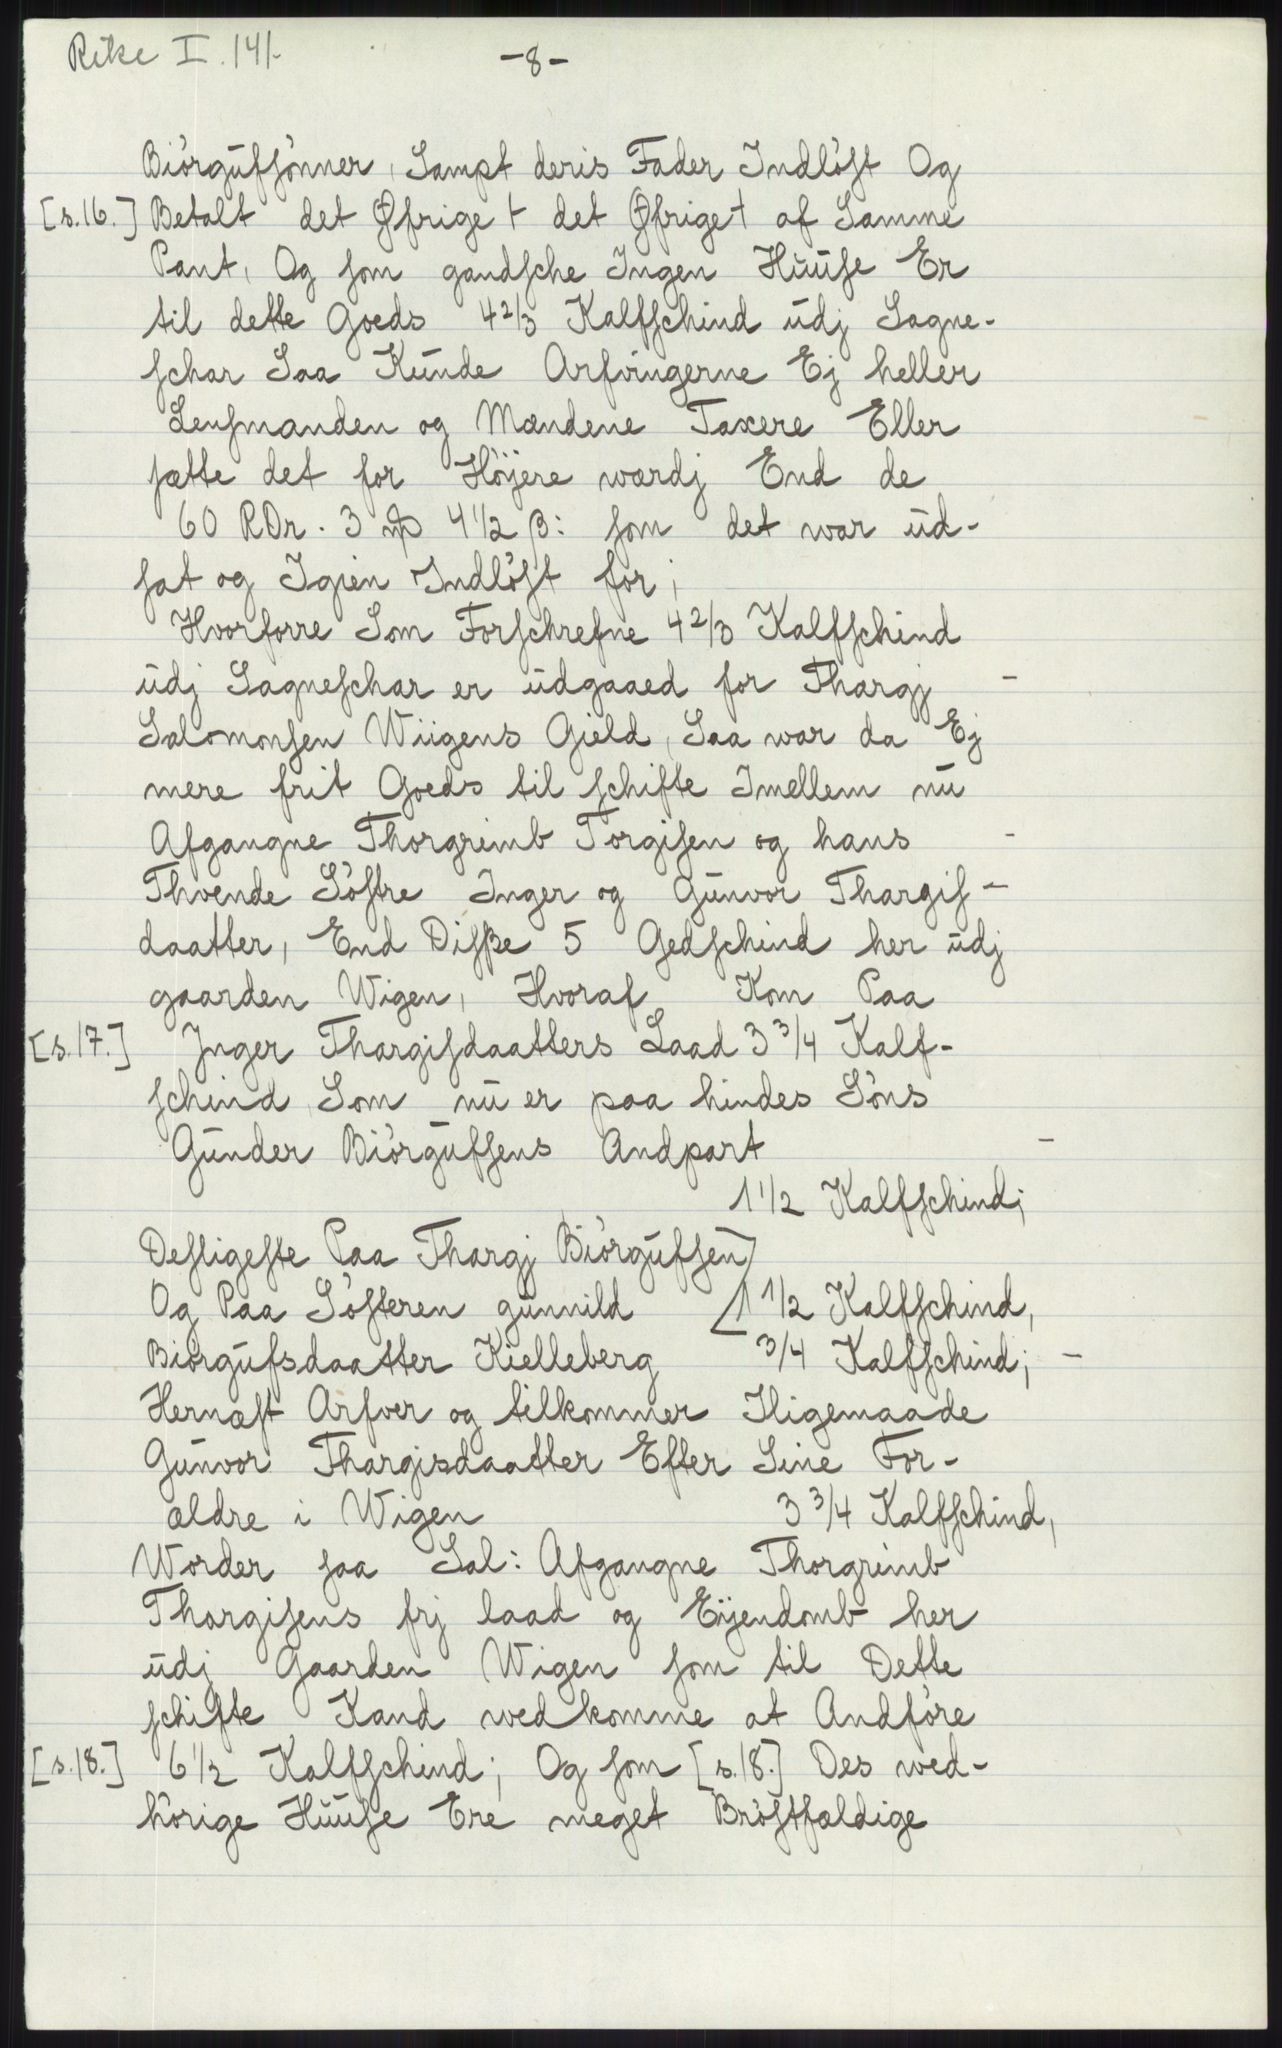 Rike I. 141.
-8-
Biórgufsónner, Sampt deris Fader Indlóst Og
[s.16.] Betalt det Øfrige + det Øfrige + af Samme
Pant, Og som gandsche Ingen Huuse Er
til dette Goeds 4 2/3 Kalfschind udj Sagne-
schar Saa Kunde Arfvingerne Ej heller
Lensmanden og Mændene Taxere Eller
sætte det for Höjere wærdj End de
60 RDr. 3 mȹ 4 1/2 β: som det war ud-
sat og Igien Indlóst for;
Hvorforre Som Forschrefne 4 2/3 Kalfschind
udj Sagneschar er udgaaed for Thargj -
Salomonsen Wiigens Gield, Saa war da Ej
mere frit Goeds til schifte Imellem nu
Afgangne Thorgrimb Torgisen og hans -
Thvende Sóstre Inger og Gunvor Thargis-
daatter, End Disse 5 Gedschind her udj
gaarden Wigen, Hvoraf Kom Paa
[s.17.] Inger Thargisdaatters Laad 3 3/4 Kalf-
schind Som nu er paa hindes Sóns
Gunder Biórgufsens Andpart -
1 1/2 Kalfschind;
Desligeste Paa Thargj Biórgufsen
Og Paa Sósteren gunnild 1 1/2 Kalfschind,
Biorgufsdaatter Kielleberg 3/4 Kalfschind; -
Hernæst Arfver og tilkommer Iligemaade
Gunvor Thargisdaatter Efter Sine For-
ældre i Wigen 3 3/4 Kalfschind,
Worder saa Sal: Afgangne Thorgrimb
Thargisens frj laad og Eijendomb her
udj Gaarden Wigen som til Dette
schifte Kand wedkomme at Andfóre
[s.18.] 6 1/2 Kalfschind; Og som [s.18.] Des wed-
hörige Huuse Ere meget Bróstfældige